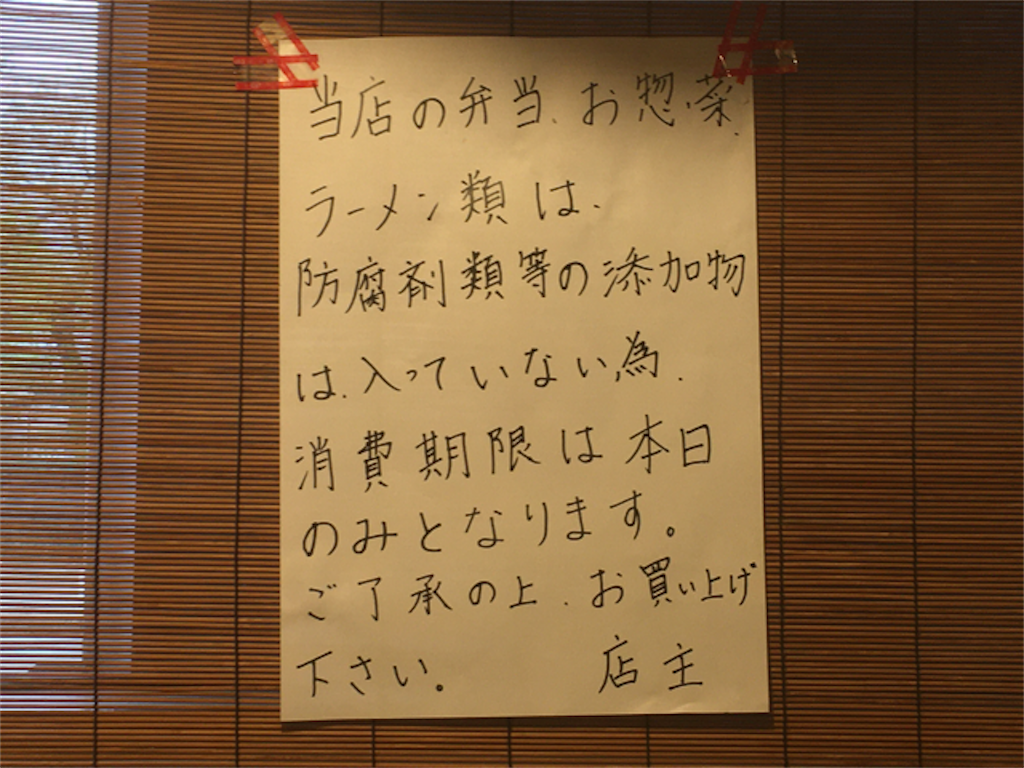 当店の弁当、お惣菜、
ラーメン類は、
防腐剤類等の添加物
は、入っていない、為、
消費期限は本日
のみとなります。
ご了承の上、お買い上げ
下さい。 店主